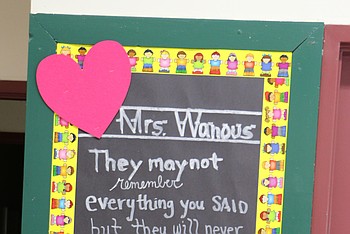 Mrs. Wanous
They may not
remember
everything you SAID
but they will never